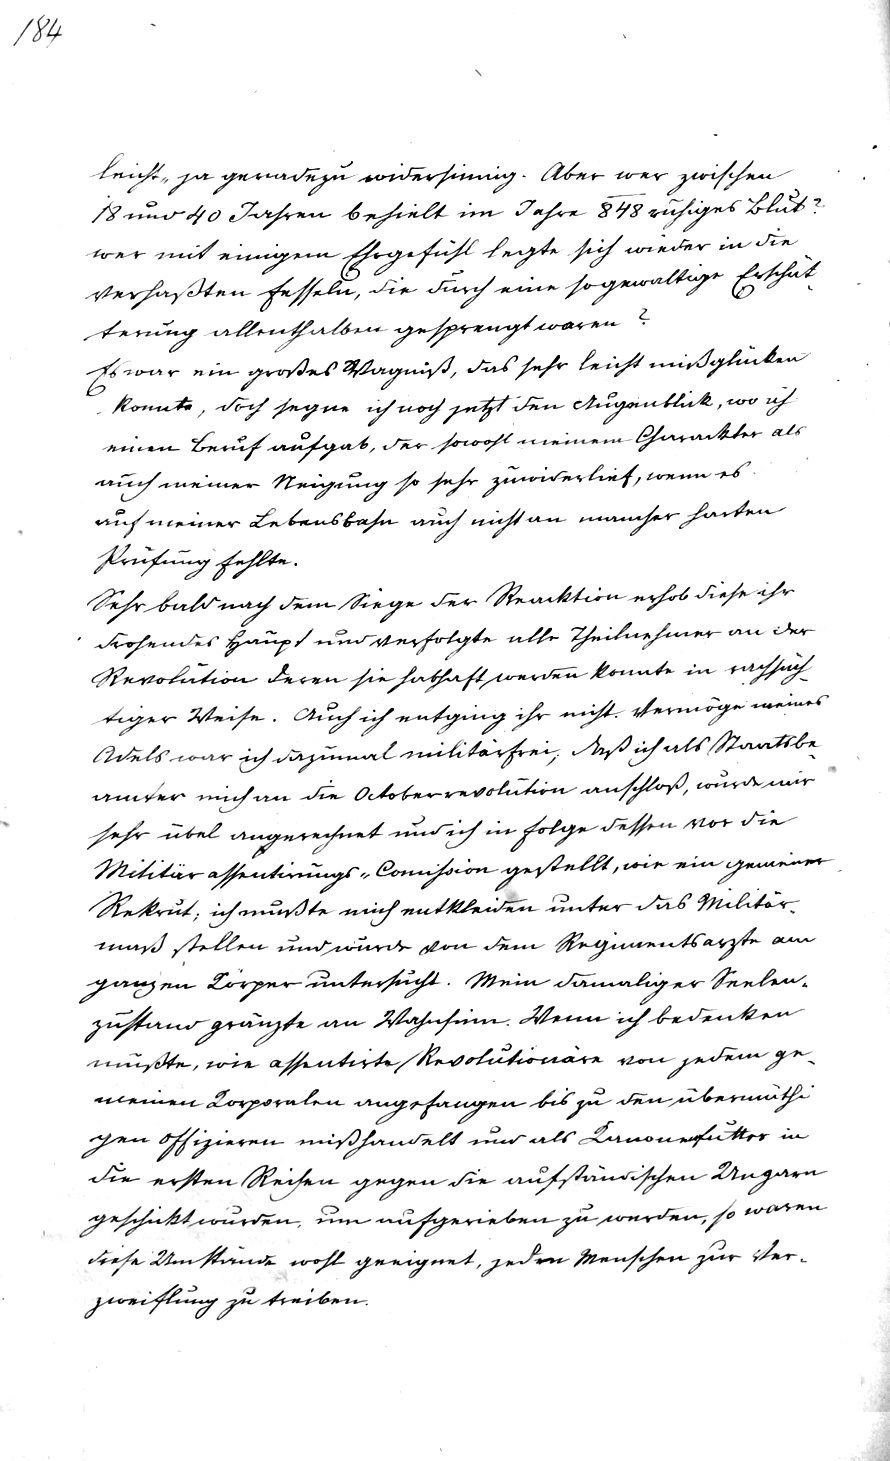 184
leicht, ja geradezu widersinnig. Aber wer zwischen
18 und 40 Jahren behielt im Jahre 848 ruhiges Blut?
wer mit einigem Ehrgefühl legte sich wieder in die
verhaßten Fesseln, die durch eine so gewaltige Erschüt-
terung allenthalben gesprengt waren?
Es war ein großes Wagniß, das sehr leicht mißglücken
konnte, doch segne ich noch jetzt den Augenblick, wo ich
einen Beruf aufgab, der sowohl meinem Charackter als
auch meiner Neigung so sehr zuwiderlief, wenn es
auf meiner Lebensbahn auch nicht an mancher harten
Prüfung fehlte.
Sehr bald nach dem Siege der Reacktion erhob diese ihr
drohendes Haupt und verfolgte alle Theilnehmer an der
Revolution deren sie habhaft werden konnte in rachsüch-
tiger Weise. Auch ich entging ihr nicht. Vermöge meines
Adels war ich dazumal militärfrei; daß ich als Staatsbe-
amter mich an die Octoberrevolution anschloß, wurde mir
sehr übel angerechnet und ich in Folge dessen vor die
Militärassentirungs-Comission gestellt, wie ein gemeiner
Rekrut; ich mußte mich entkleiden unter das Militär-
maß stellen und wurde von dem Regimentsarzte am
ganzen Körper untersucht. Mein damaliger Seelen-
zustand gränzte an Wahnsinn. Wenn ich bedenken
mußte, wie assentirte Revolutionäre von jedem ge-
meinen Korporalen angefangen bis zu den übermüthi
gen Offizieren mißhandelt und als Kanonenfutter in
die ersten Reihen gegen die aufständischen Ungarn
geschickt wurden, um aufgerieben zu werden, so waren
diese Umstände wohl geeignet, jeden Menschen zur Ver-
zweiflung zu treiben.